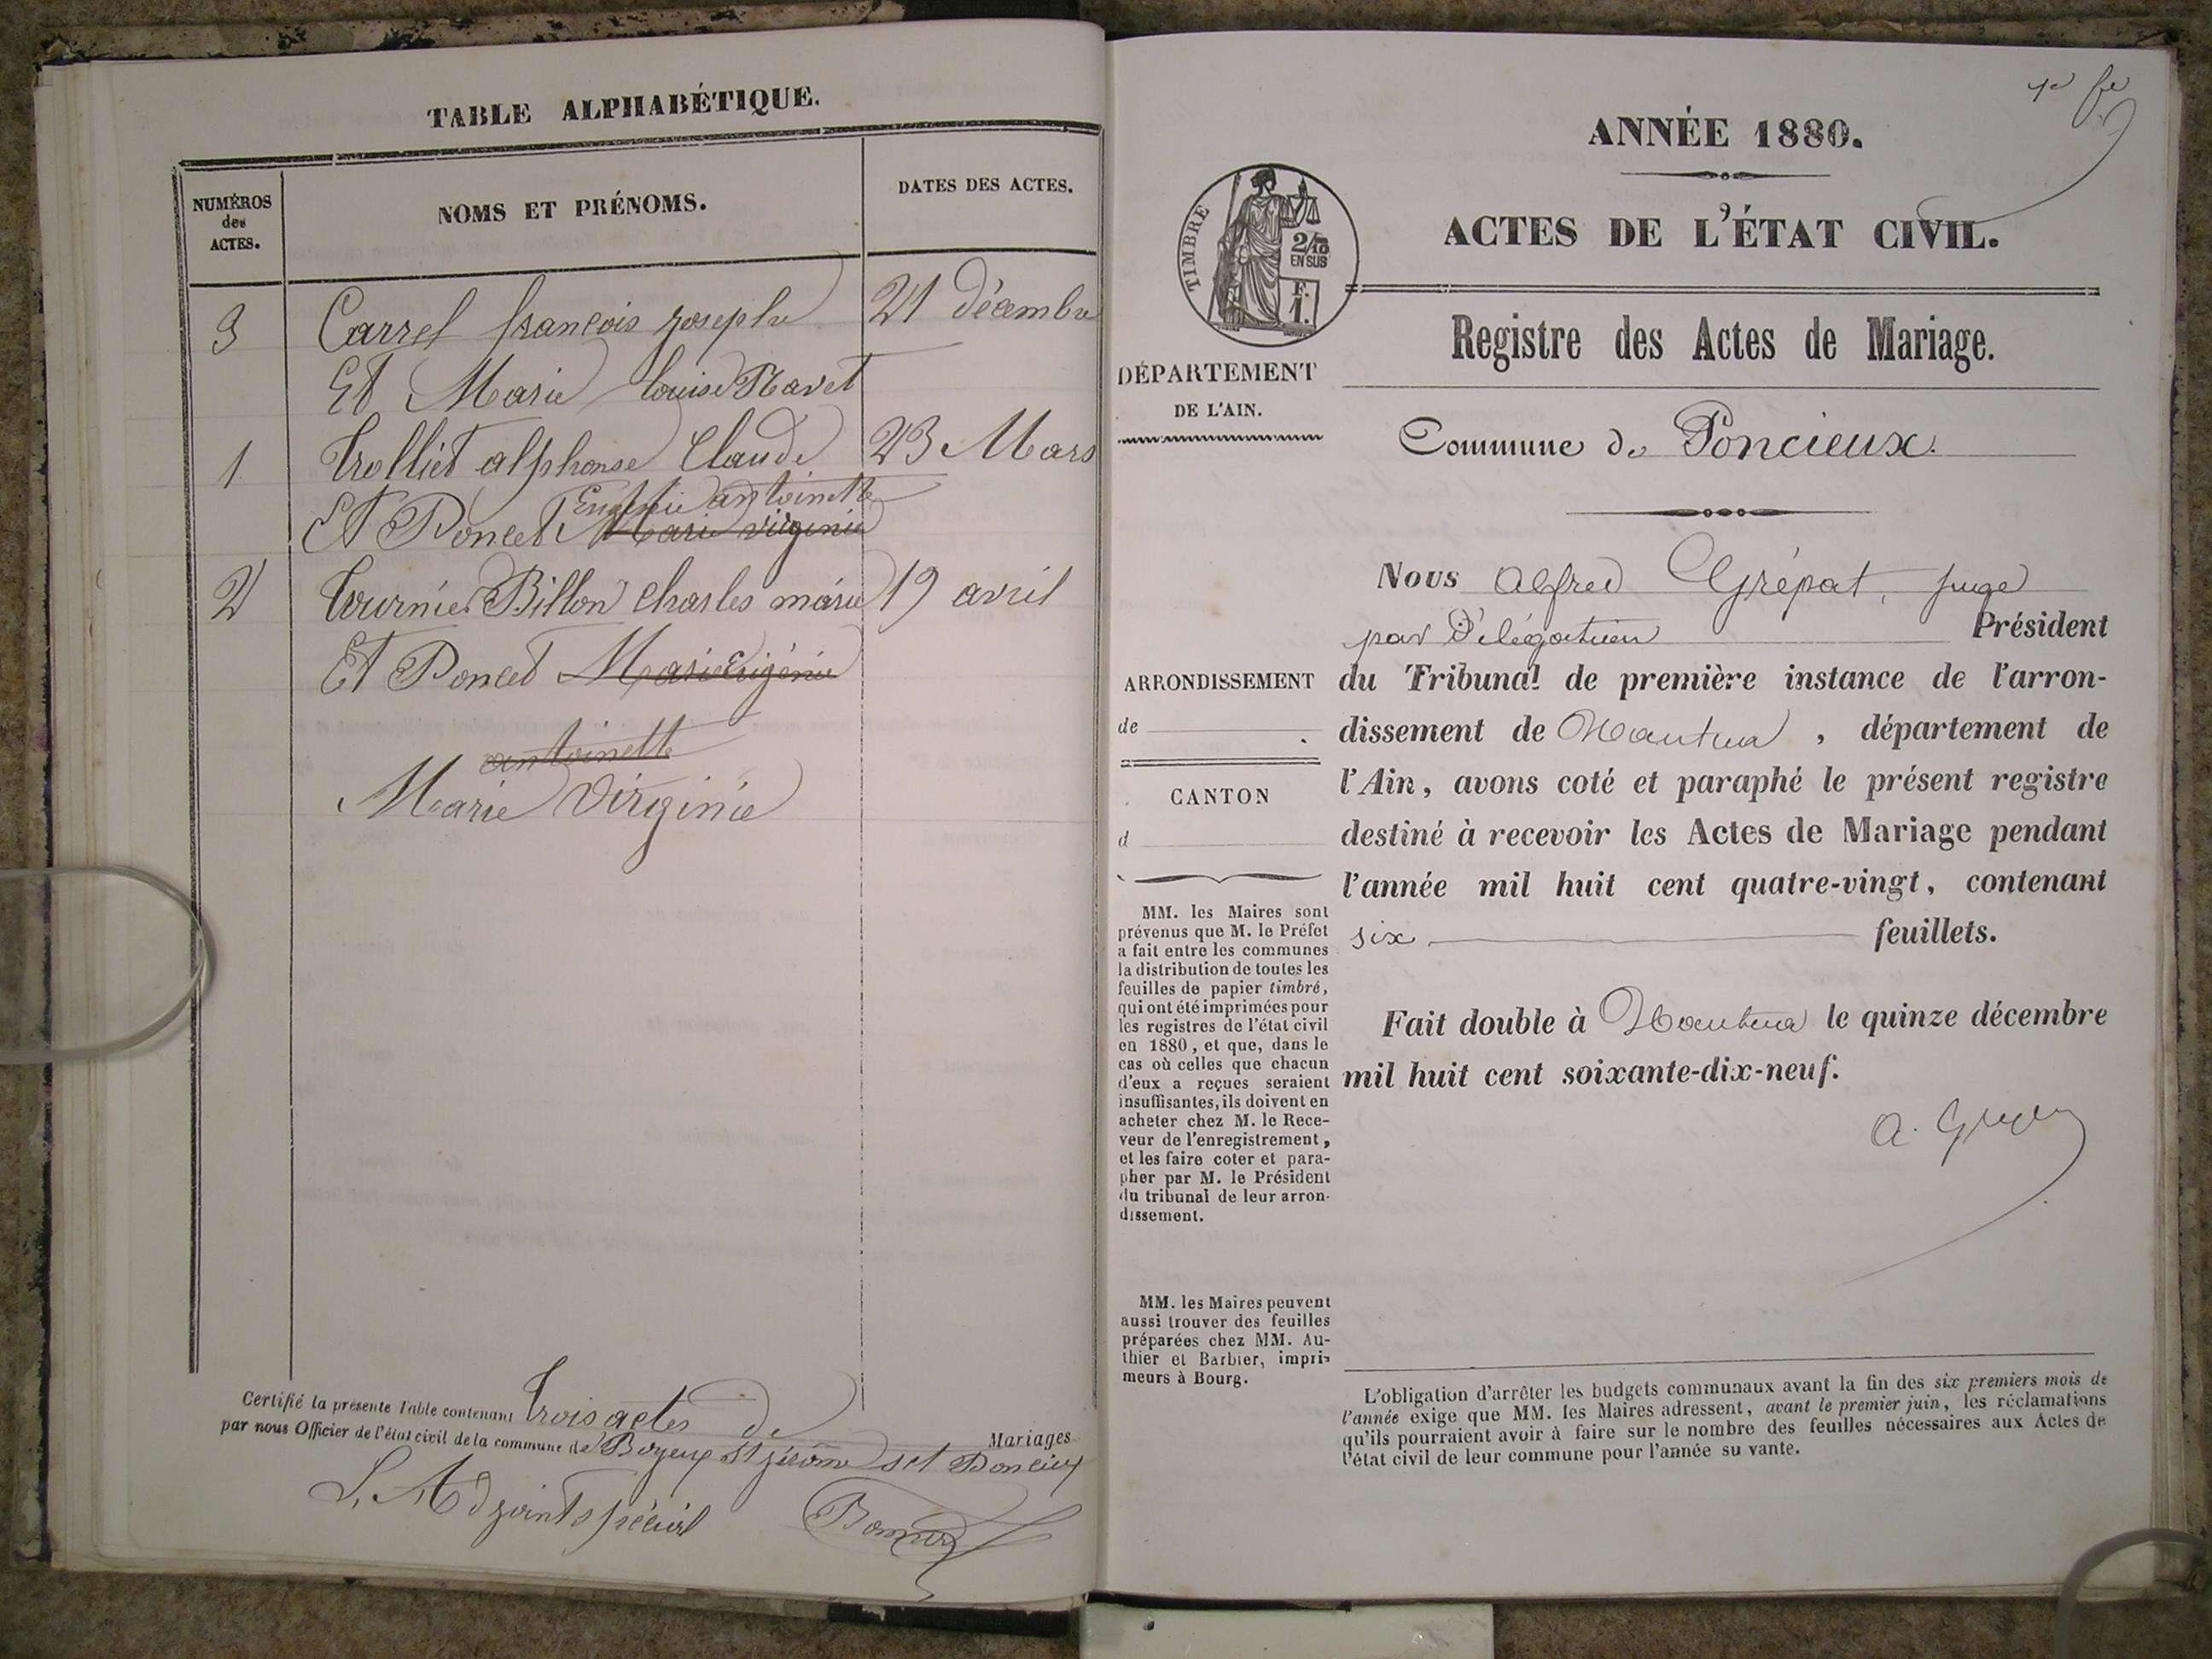 TABLE ALPHABÉTIQUE.
NUMÉROS des ACTES.
NOMS ET PRÉNOMS.
DATES DES ACTES.
3 Carrel françois joseph 21 décembre
Et Marie louise Navet
1 Trolliet alphonse Claude 23 Mars
Eugénie antoinette
Et Poncet Marie virginie
2 Tournier Billon Charles marie 19 avril
Et Poncet Marie Eugénie
antoinette
Marie Virginie
Certifié la présente Table contenant Trois actes de Mariages
par nous Officier de l'état civil de la commune de Boyeux St jérome sct Poncieux
L'Adjoint spécial
1er fet
ANNÉE 1880.
ACTES DE L'ÉTAT CIVIL.
TIMBRE
2/10
EN SUS
F.
1.
Registre des Actes de Mariage.
DÉPARTEMENT
DE L'AIN.
Commune de Poncieux.
Nous Alfred Grépat, juge
par Délégation Président
du Tribunal de première instance de l'arron-
dissement de Nantua, département de
l'Ain, avons coté et paraphé le présent registre
destiné à recevoir les Actes de Mariage pendant
l'année mil huit cent quatre-vingt, contenant
six feuillets.
Fait double à Nantua le quinze décembre
mil huit cent soixante-dix-neuf.
ARRONDISSEMENT
de
CANTON
d
MM. les Maires sont
prévenus que M. le Préfet
a fait entre les communes
la distribution de toutes les
feuilles de papier timbré,
qui ont été imprimées pour
les registres de l'état civil
en 1880, et que, dans le
cas où celles que chacun
d'eux a reçues seraient
insuffisantes, ils doivent en
acheter chez M. le Rece-
veur de l'enregistrement,
et les faire coter et para-
pher par M. le Président
du tribunal de leur arron-
dissement.
MM. les Maires peuvent
aussi trouver des feuilles
préparées chez MM. Au-
thier et Barbier, impri-
meurs à Bourg.
L'obligation d'arrêter les budgets communaux avant la fin des six premiers mois de
l'année exige que MM. les Maires adressent, avant le premier juin, les réclamations
qu'ils pourraient avoir à faire sur le nombre des feuilles nécessaires aux Actes de
l'état civil de leur commune pour l'année su vante.